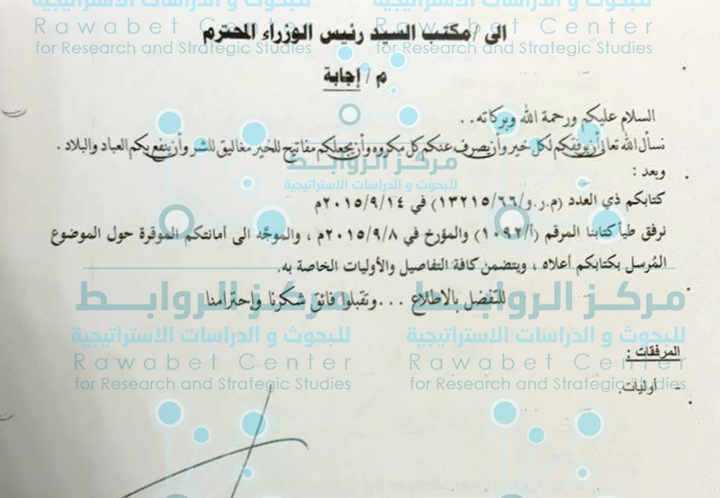 للبحوث و الدراسات الاستراتيجية للبحوث و الدراسات الاستراتيجية
Rawabet Center Rawabet Center
for Research and Strategic Studies for Research and Strategic Studies
الى / مكتب السيد رئيس الوزراء المحترم
م / إجابة
السلام عليكم ورحمة الله وبركاته..
نسأل الله تعالى أن يوفقكم لكل خير وأن يصرف عنكم كل مكروه وأن يجعلكم مفاتيح للخير مغاليق للشر وأن ينفع بكم العباد والبلاد .
مركز الروابط
للبحوث و الدراسات الاستراتيجية
وبعد :
كتابكم ذي العدد (م.ر.و/٦٦/١٣٢١٥) في ٢٠١٥/٩/١٤م
نرفق طياً كتابنا المرقم (أ/١٠٩٢) والمؤرخ في ٢٠١٥/٩/٨م ، والموجّه الى أمانتكم الموقرة حول الموضوع
المُرسل بكتابكم أعلاه ، ويتضمن كافة التفاصيل والأوليات الخاصة به.
للتفضل بالاطلاع ...وتقبلوا فائق شكرنا وإحترامنا
مركز الروابط مركز الروابط
للبحوث و الدراسات الاستراتيجية للبحوث و الدراسات الاستراتيجية
Rawabet Center Rawabet Center
for Research and Strategic Studies for Research and Strategic Studies
المرفقات :
- أوليات.